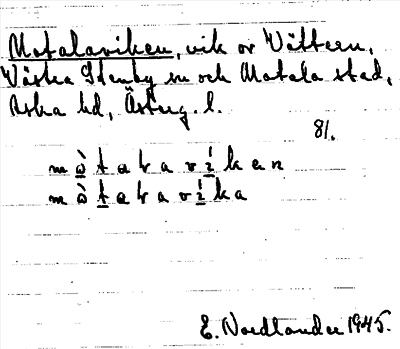 Motalaviken, vik av Vättern,
Västra Stenby sn och Motala stad,
Aska hd, Österg. l.
81.
mòtaɫavíken
mòtaɫavíka
E. Nordlander 1945.